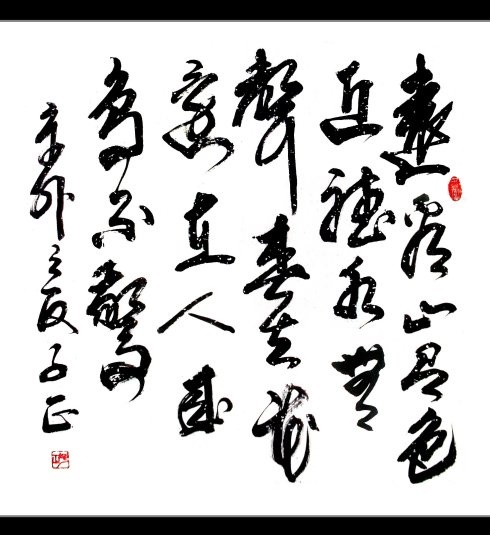 遠看山有色
近聽水無
聲春去花
還在人來
鳥不驚
辛卯之夏子正